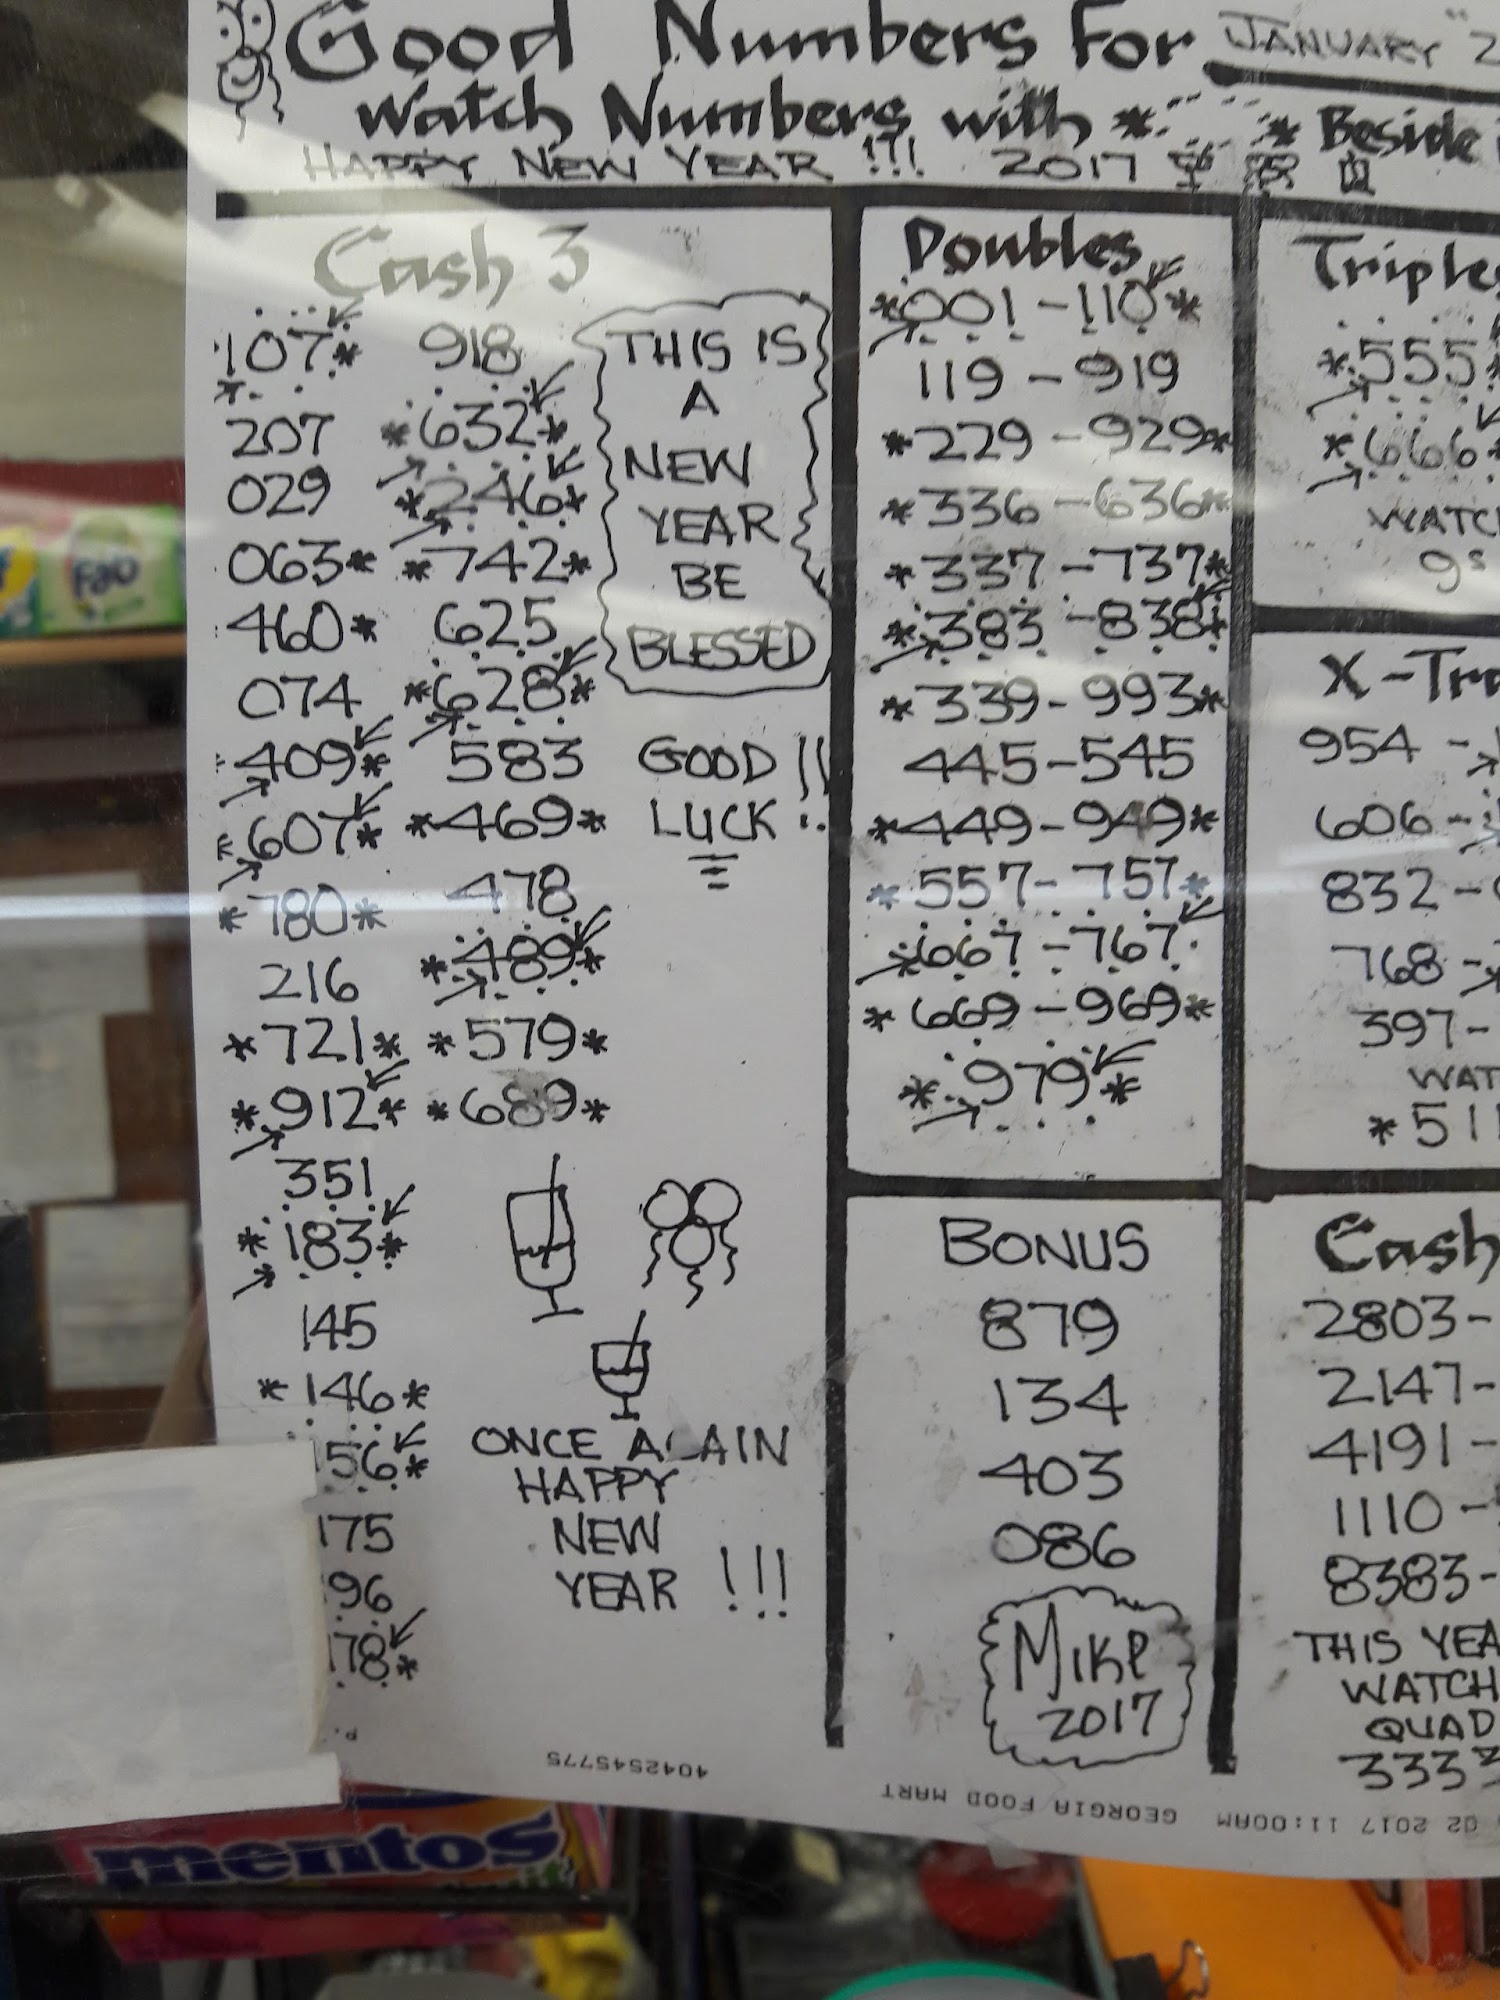 Good Numbers For JANUARY 2
Watch Numbers with * * Beside
HAPPY NEW YEAR !!! 2017
Cash 3
107*
207
029
063*
460*
074
409*
*607*
*780*
216
*721*
*912*
351
*183*
145
*146*
156*
175
96
178*
918
*632*
*246*
*742*
625
*628*
583
*469*
478
*489*
*579*
*689*
THIS IS
A
NEW
YEAR
BE
BLESSED
GOOD
LUCK !!
ONCE AGAIN
HAPPY
NEW
YEAR !!!
Doubles
*001-110*
119-919
*229-929*
*336-636*
*337-737*
*383-838*
*339-993*
445-545
*449-949*
*557-757*
*667-767
*669-969*
*979*
BONUS
879
134
403
086
MIKE
2017
Triples
*555*
*666*
WATC
9s
X-Tra
954 -
606 -
832 -
768 -
397 -
WAT
*511
Cash
2803-
2147-
4191-
1110-
8383-
THIS YEA
WATCH
QUAD
3333
4042545775
02 2017 11:00AM GEORGIA FOOD MART
Fab
mentos